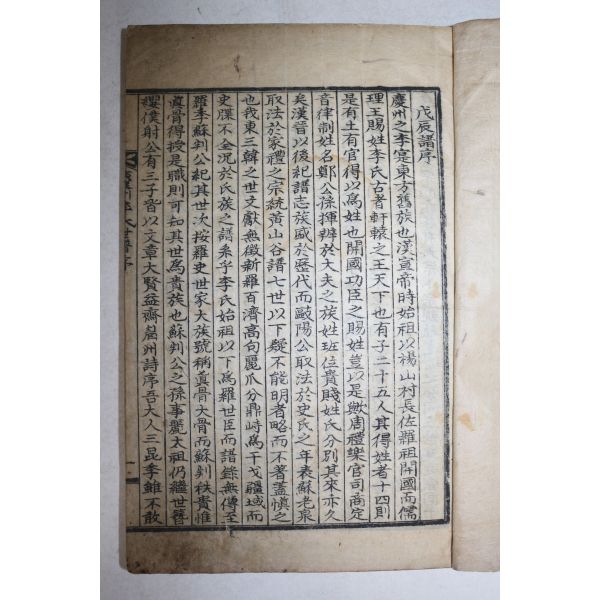 戊辰譜序
慶州之李寔東方舊族也漢宣帝時始祖以楊山村長佐羅祖開國而儒
理王賜姓李氏古者軒轅之王天下也有子二十五人其得姓者十四則
是有土有官得以爲姓也開國功臣之賜姓豈以是歟周禮樂官司商定
音律制姓名鄭公孫揮辨於大夫之族姓班位貴賤姓氏分別其來亦久
矣漢晉以後紀譜志族盛於歷代而歐陽公取法於史氏之年表蘇老泉
取法於家禮之宗統黃山谷譜七世以下疑不能明者略而不著盖愼之
也我東三韓之世文獻無徵新羅百濟高句麗爪分鼎峙爲干戈疆域而
史牒不全況於氏族之譜系乎李氏始祖以下爲羅世臣而譜錄無傳至
羅季蘇判公紀其世次按羅史世家大族號稱眞骨大骨而蘇判秩貴惟
眞骨得授是職則可知其世爲貴族也蘇判公之孫事麗太祖仍繼世簪
纓僕射公有三子皆以文章大賢益齋 州詩序吾大人三昆季雖不敢
世譜序
一